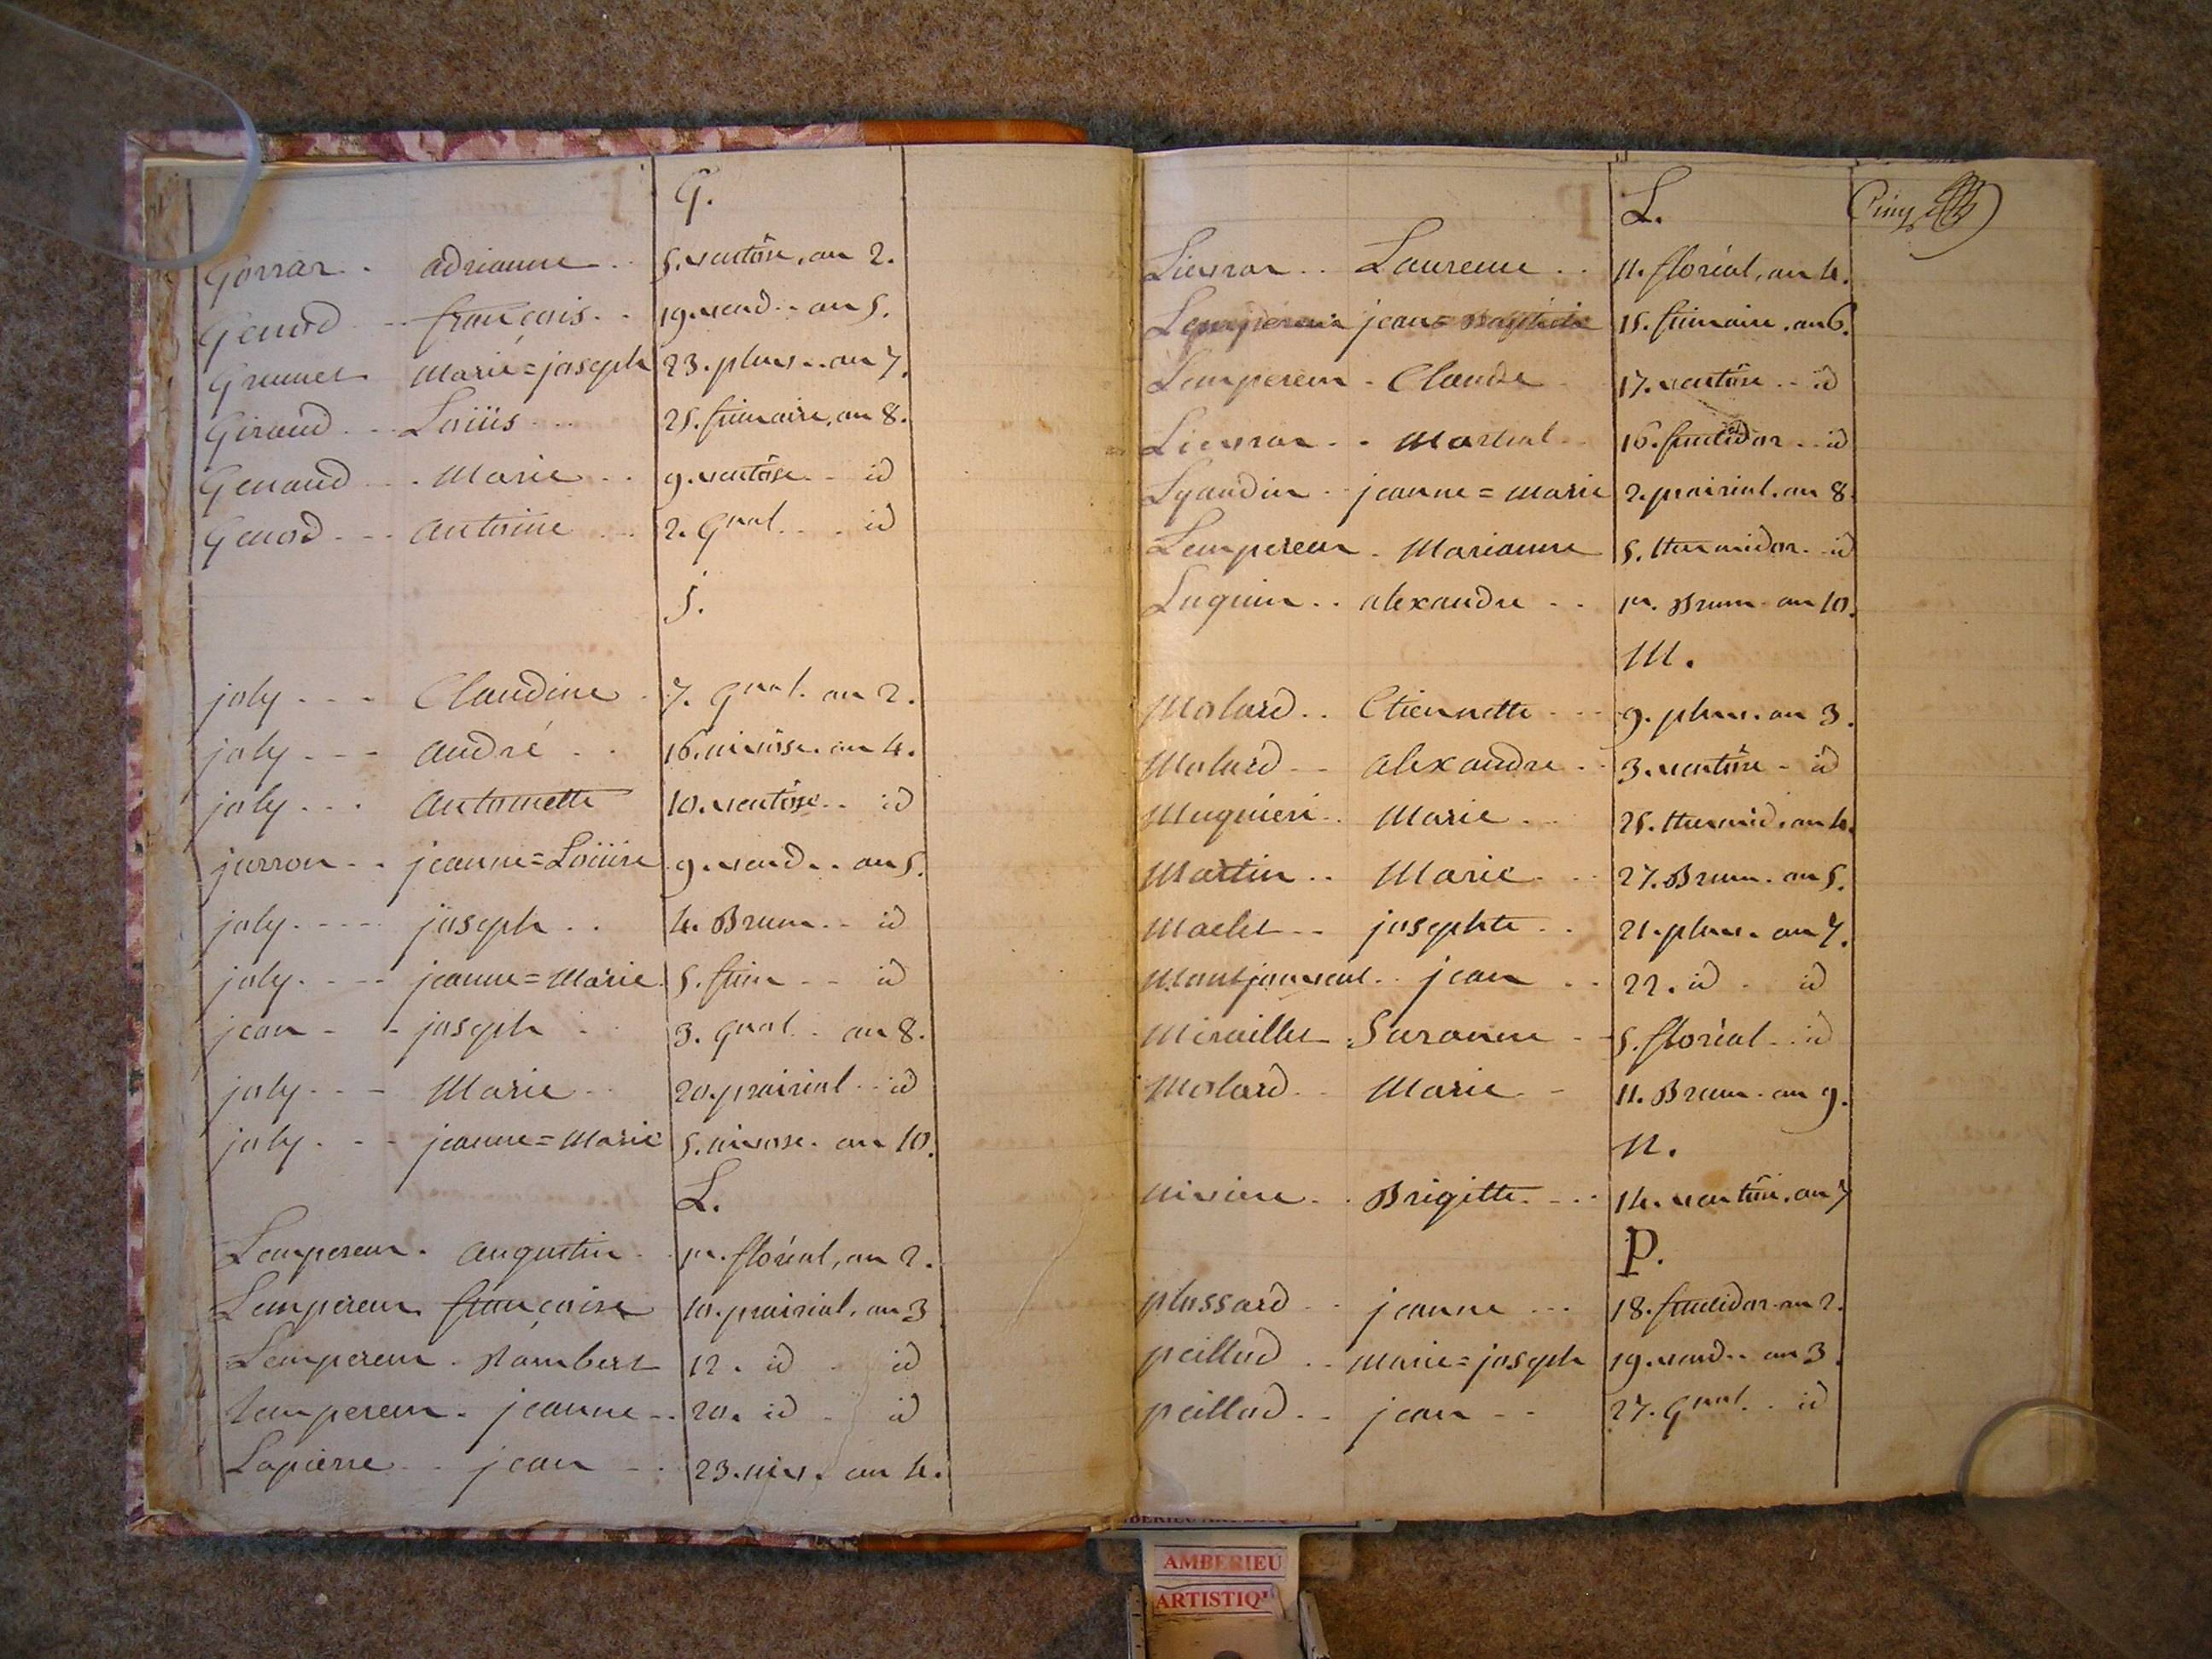 G.
Gorrar . adrianne . . 5. ventôse, an 2.
Genod . . françois . . 19. vend . . an 5.
Grumet Marie=joseph 23. pluv . . an 7.
Giraud . . Loüis . . . 25. frimaire, an 8.
Genaud . . . Marie . . 9. ventôse . . id
Genod . . . antoine . . 2. Gnal . . . id
J.
joly . . . Claudine . 7. Gnal. an 2.
joly . . . andré . . 16. nivôse. an 4.
joly . . . antoinette 10. ventôse . . id
jurron . . jeanne=Loüise 9. vend . . an 5.
joly . . . . joseph . . 4. Brum . . id
joly . . . . jeanne=Marie 5. frim . . id
jean . . joseph . . 3. Gnal . an 8.
joly . . . Marie . . 20. prairial . . id
joly . . . jeanne=Marie 5. nivose. an 10.
L.
Lempereur . augustin . . pr. floréal, an 2.
Lempereur françoise 10. prairial, an 3
Lempereur . Rambert 12. id . id
Lempereur . jeanne . . 20. id . id
Lapierre . . jean . . 23. niv. an 4.
L. Cinq
Lievrar . . Laurence . . 11. floréal, an 4.
Lempereur jean=Baptiste 15. frimaire. an 6.
Lempereur . Claude 17. ventôse . . id
Lievrar . . Martial . . 16. fructidor . . id
Lyaudin . . jeanne=Marie 2. prairial. an 8.
Lempereur . Marianne 5. thermidor . id
Luquin . . alexandre . . pr. Brum. an 10.
M.
Molard . . Etiennette . . . 9. pluv. an 3.
Molard . . alexandre . . 3. ventôse . id
Muguieri . . Marie . . . 25. thermid. an 4.
Martin . . Marie . . . 27. Brum. an 5.
Maclet . . josephte . . 21. pluv. an 7.
jean . . 22. id . id
Miraillet . Suzanne . . 5. floréal . . id
Molard . . Marie . 11. Brum. an 9.
N.
nivière . . Brigitte . . . 14. ventôse. an 7
P.
plassard . . jeanne . . . 18. fructidor an 2.
peillod . . Marie=joseph 19. vend . . an 3.
peillod . . jean . . 27. Gnal . . id
AMBERIEU
ARTISTIQ